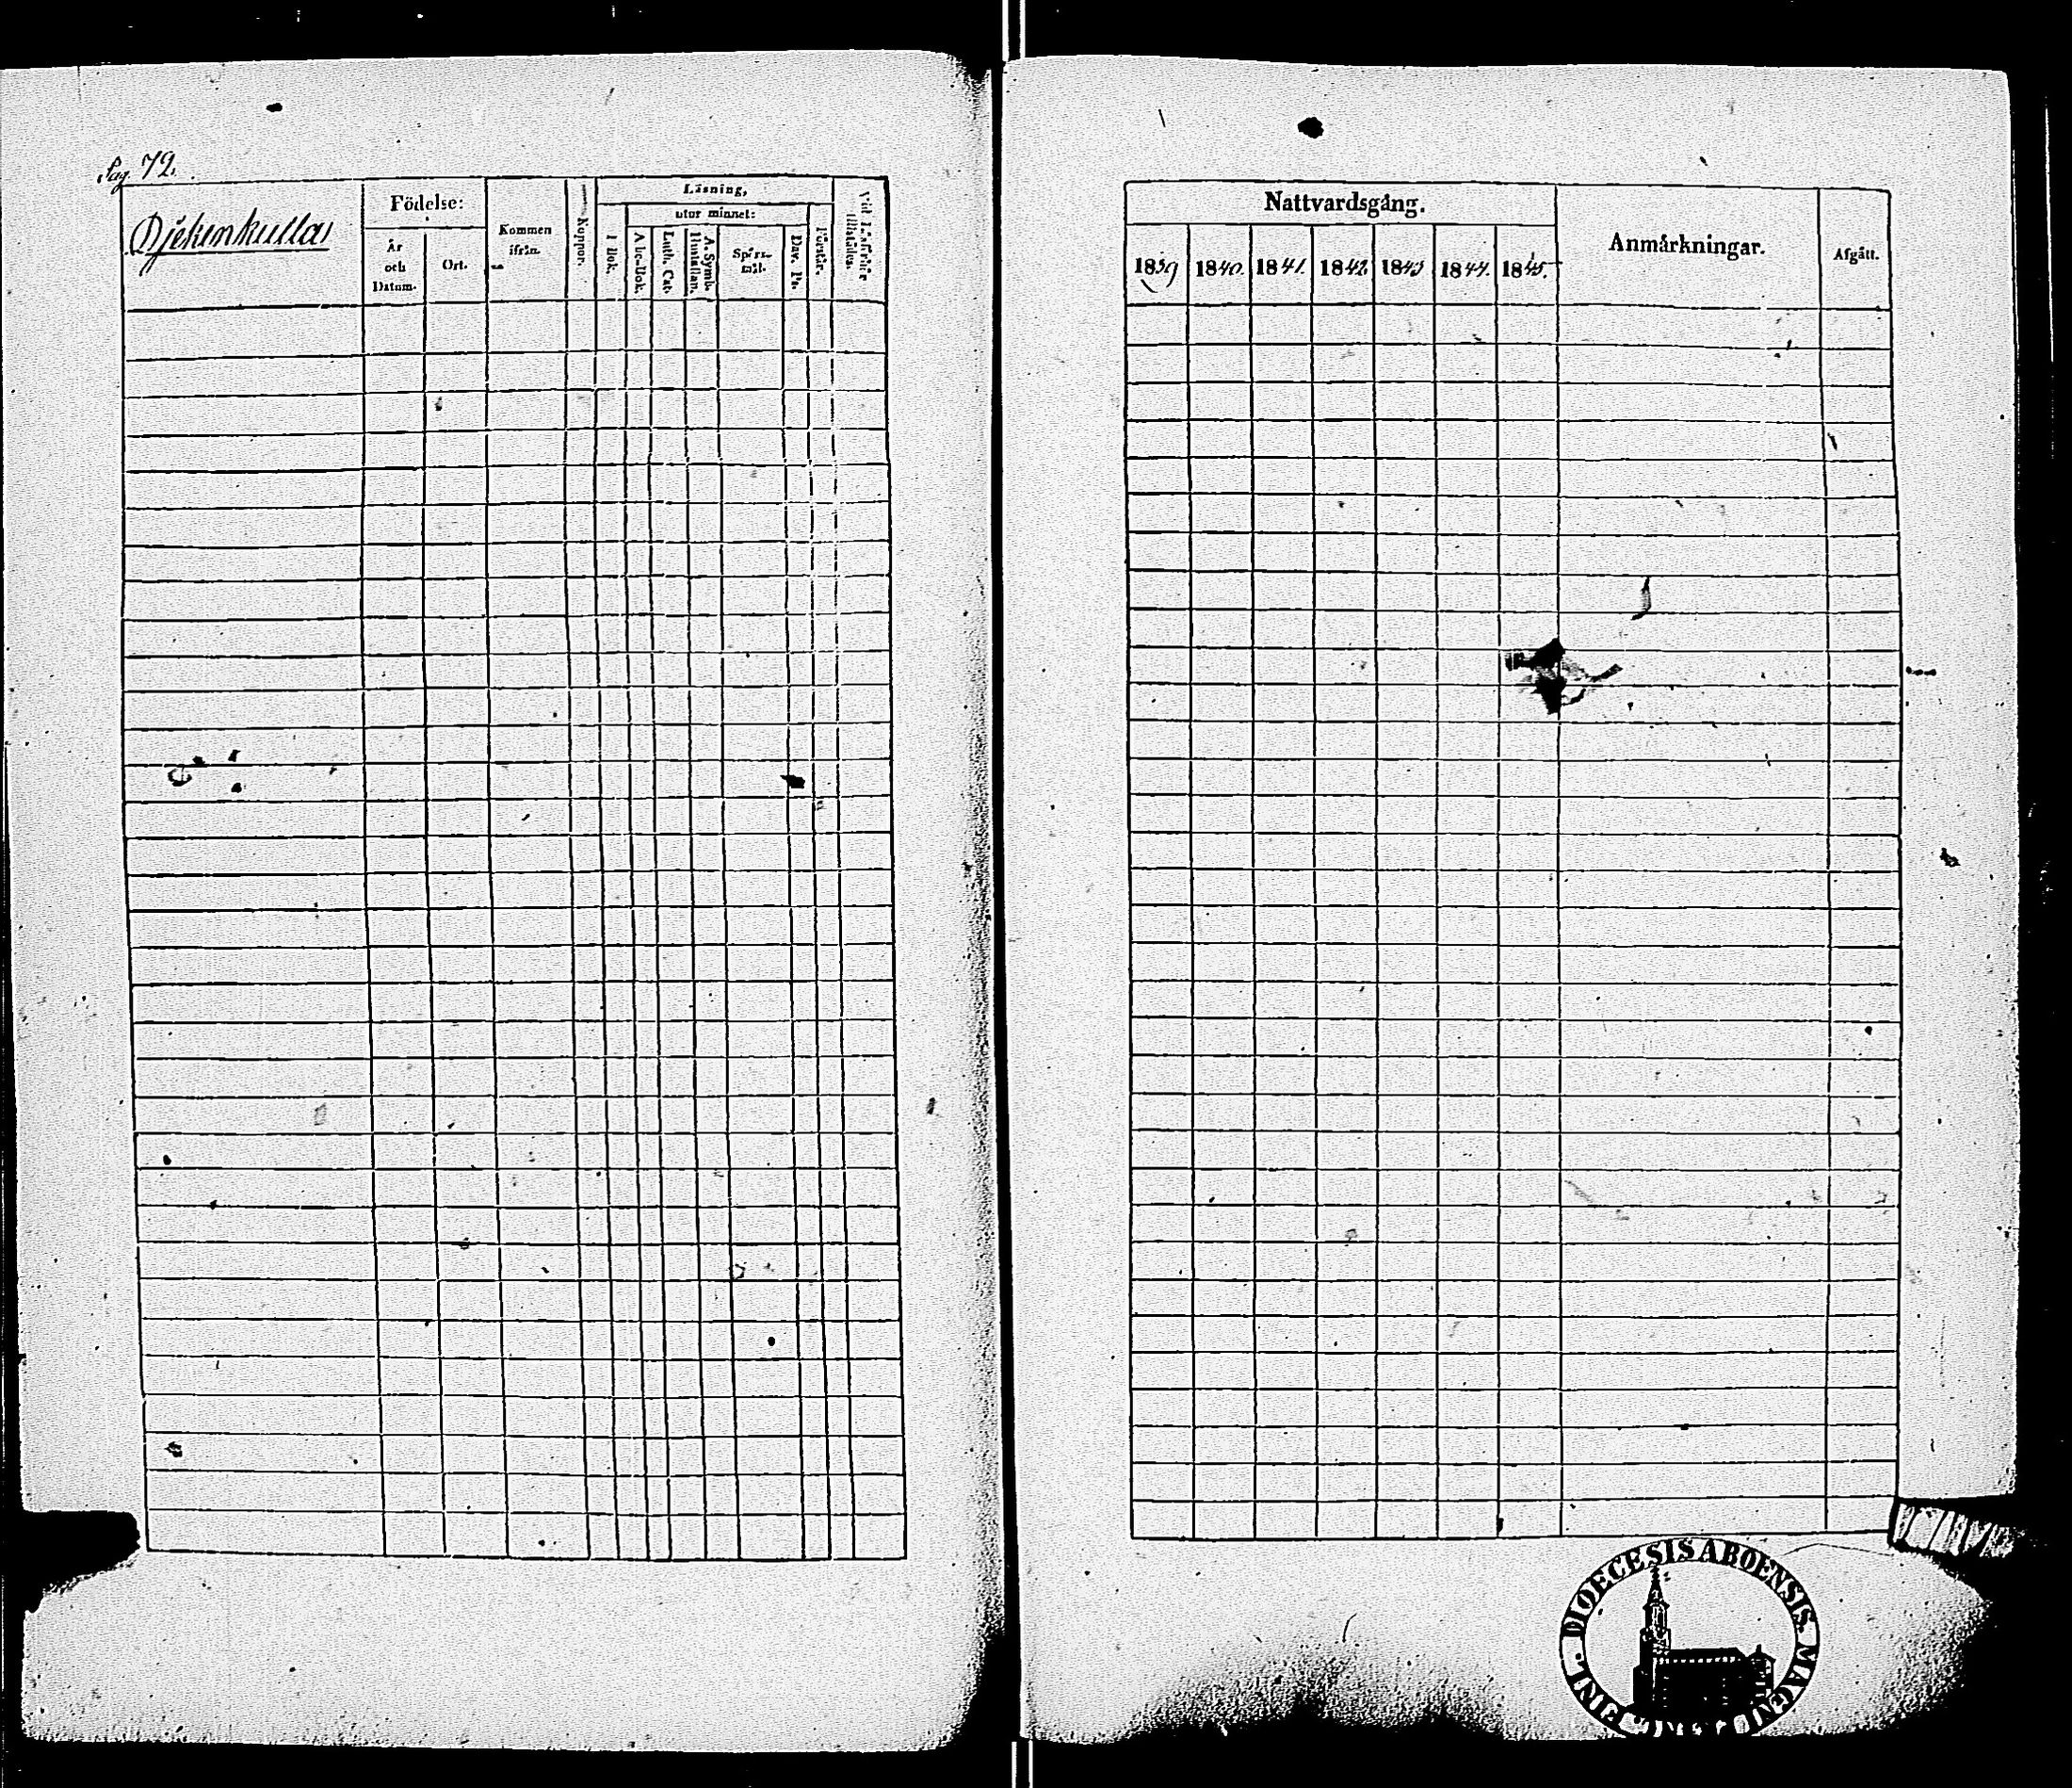 Pag. 72.
Djekenkulla
Födelse:
År
och
Datum.
Ort.
Kommen
ifrån.
Koppor.
Läsning,
I Bok.
utur minnet:
A bc-Bok.
Luth. Cat.
A. Symb.
Hustaflan.
Spörs-
mål.
Dav. Ps.
Förstår.
Nattvardsgång.
1839
1840.
1841.
1842.
1843
1844.
1845.
Anmärkningar.
Afgått.
DIOECESIS ABOENSIS. MAGNI
FINL.